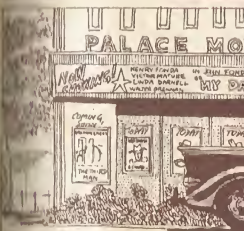 PALACE MO
NOW
SHOWING!
HENRY FONDA
VICTOR MATURE
LINDA DARNELL
WALTER BRENNAN
IN JOHN FORD
MY DA
COMING
SOON
THE THIRD
MAN
TODAY
TODAY